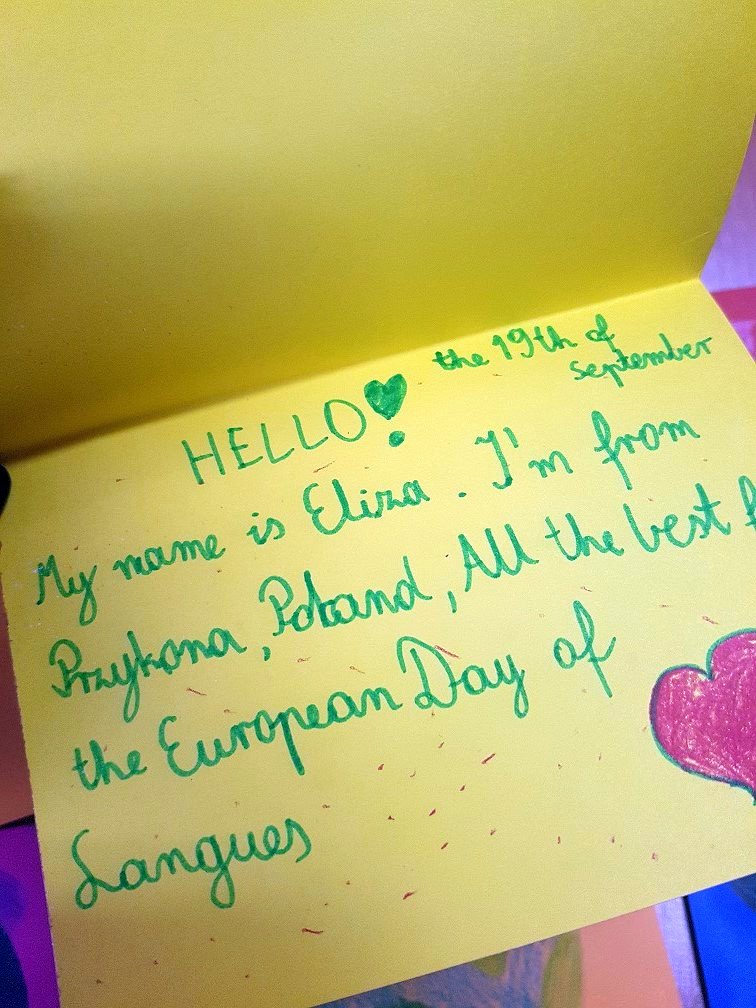 the 19th of
september
HELLO!
My name is Eliza. I'm from
Przykona, Poland, All the best f
the European Day of
Langues